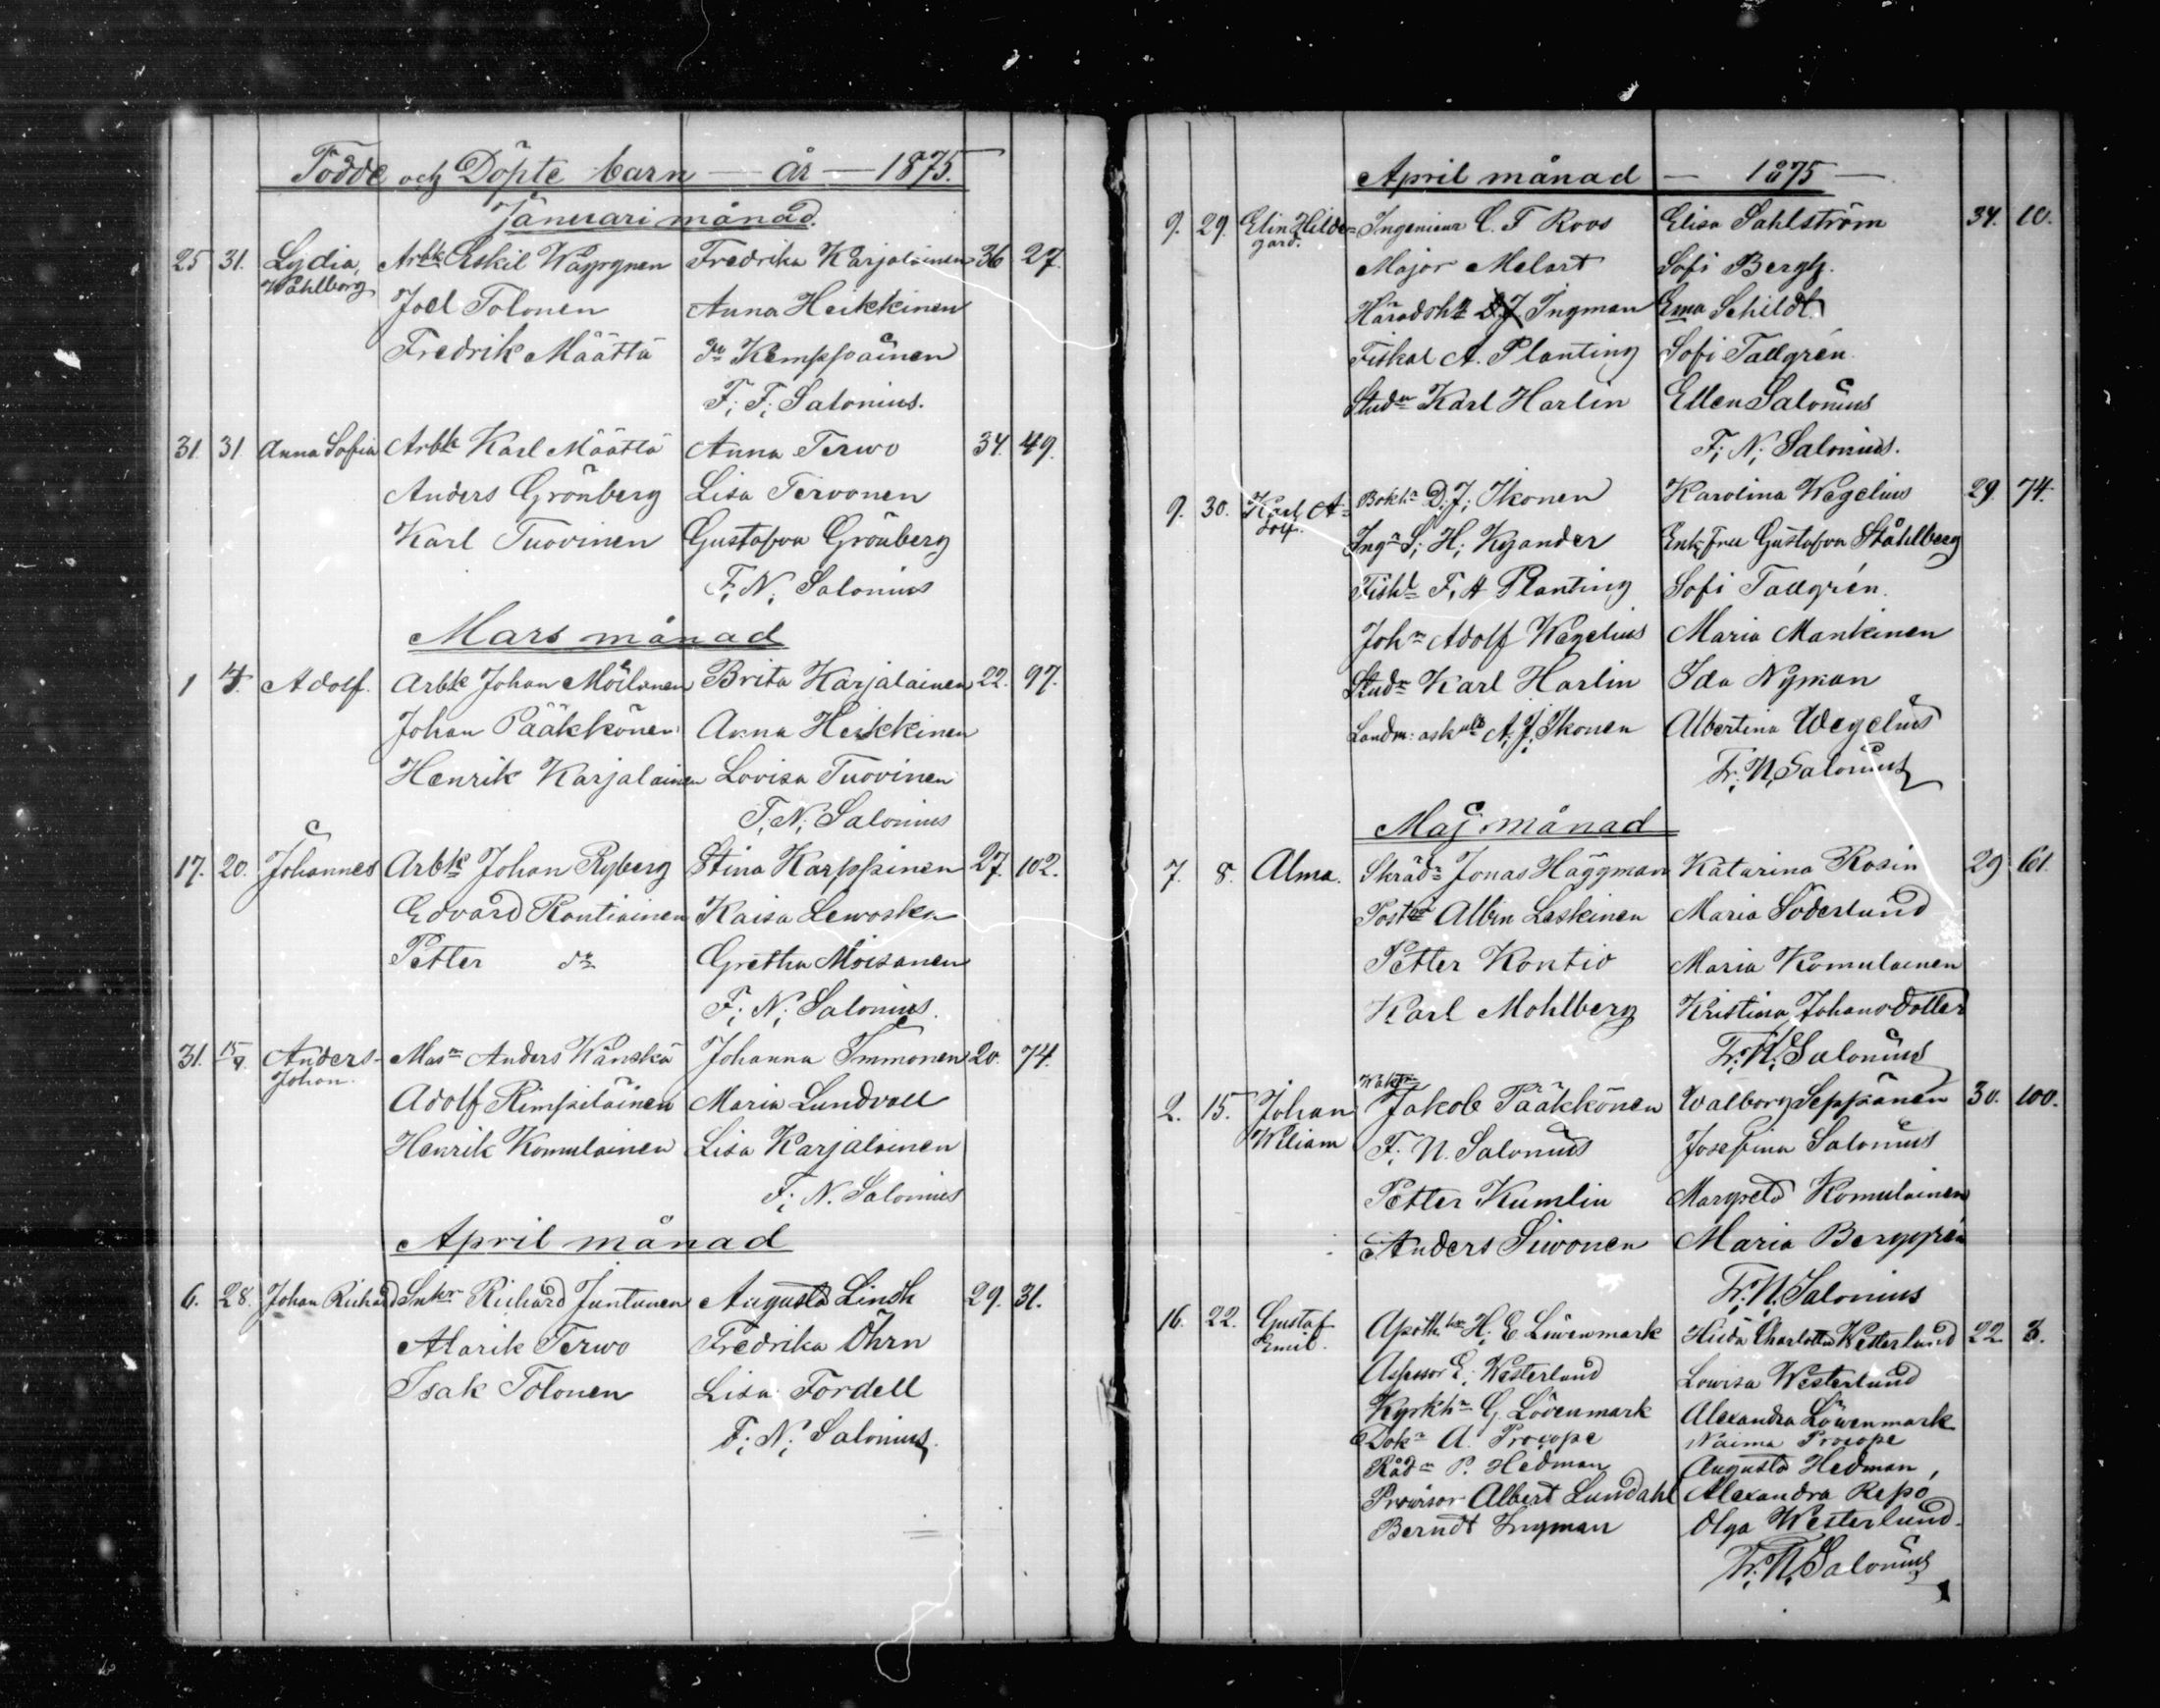 Födde och Döpte barn — år — 1875.
Januari månad.
25 31. Lydia, Arbk Eskil Wäyrynen Fredrika Karjalainen 36 27.
Wahlborg Joel Tolonen Anna Heikkinen
Fredrik Määttä do Kemppainen
F; F; Salonius.
31. 31 Anna Sofia Arbk Karl Määttä Anna Terwo 34. 49.
Anders Grönberg Lisa Tervonen
Karl Tuovinen Gustafva Grönberg
F; N; Salonius
Mars månad
1 4. Adolf. Arbk Johan Möilanen Brita Karjalainen 22. 97.
Johan Pääkkönen Anna Heikkinen
Henrik Karjalainen Lovisa Tuovinen
F; N; Salonius
17. 20. Johannes Arbk Johan Ryberg Stina Karppinen 27. 102.
Edvard Rontiainen Kaisa Lewoska
Petter do Gretha Moisanen
F; N; Salonius.
31. 15/4. Anders Masn Anders Wänskä Johanna Immonen 20. 74.
Johan. Adolf Rimpiläinen Maria Lundvall
Henrik Komulainen Lisa Karjalainen
F; N. Salonius
April månad
6. 28. Johan Richard Snkr Richard Juntunen Augusta Lindh 29. 31.
Alarik Terwo Fredrika Öhrn
Isak Tolonen Lisa Fordell
F; N; Salonius.
April månad — 1875 —
9. 29. Elin Hilde= Ingenieur C. F Roos Elisa Sahlström 34. 10.
gard. Major Melart Sofi Bergh.
Häradsh Ingman Ema Schildt
Fiskal A. Planting Sofi Tallgrén.
Studn Karl Harlin Ellen Salonius
F; N; Salonius.
9. 30. Karl A= Bokhr D; J; Ikonen Karolina Wegelius 29. 74.
dolf. Ingr S; H; Kyander Enk Fru Gustafva Ståhlberg
Fiskl F, A Planting Sofi Tallgrén.
John Adolf Wegelius Maria Mankinen
Studn Karl Harlin Ida Nyman
Landm: ask A; J; Ikonen Albertina Wegelius
Fr; N; Salonius
Maj månad
7. 8. Alma. Skrädr Jonas Häggman Katarina Rosin 29 61.
Albin Leskinen Maria Söderlund
Petter Kontio Maria Komulainen
Karl Mohlberg Kristina Johansdotter
Fr; N; Salonius
2. 15. Johan Jakob Pääkkönen Walborg Seppänen 30. 100.
Wiliam F; N. Salonius Josefina Salonius
Petter Kumlin Margreta Komulainen
Anders Siwonen Maria Berggrén
Fr; N; Salonius
16. 22. Gustaf Apothkr H; E. Löwenmark Hilda Charlotta Westerlund 22. 3.
Emil. Assessor E; Westerlund Lowisa Westerlund
Kyrkhr G. Lövenmark Alexandra Löwenmark
Dokr A. Procope Naima Procope
Rådm P. Hedman Augusta Hedman,
Provisor Albert Lundahl Alexandra Repo
Berndt Ingman Olga Westerlund.
Fr; N; Salonius